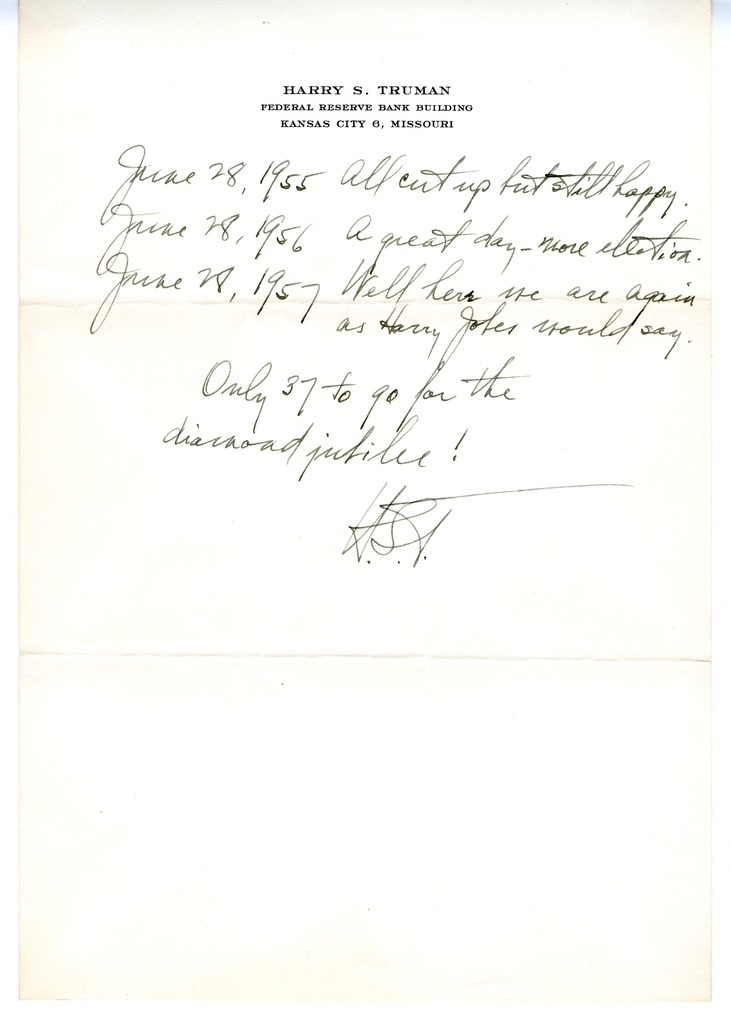 HARRY S. TRUMAN
FEDERAL RESERVE BANK BUILDING
KANSAS CITY 6, MISSOURI
June 28, 1955 All cut up but still happy.
June 28, 1956 A great day – more elation.
June 28, 1957 Well here we are again
as Harry Jobes would say.
Only 37 to go for the
diamond jubilee!
H.S.T.